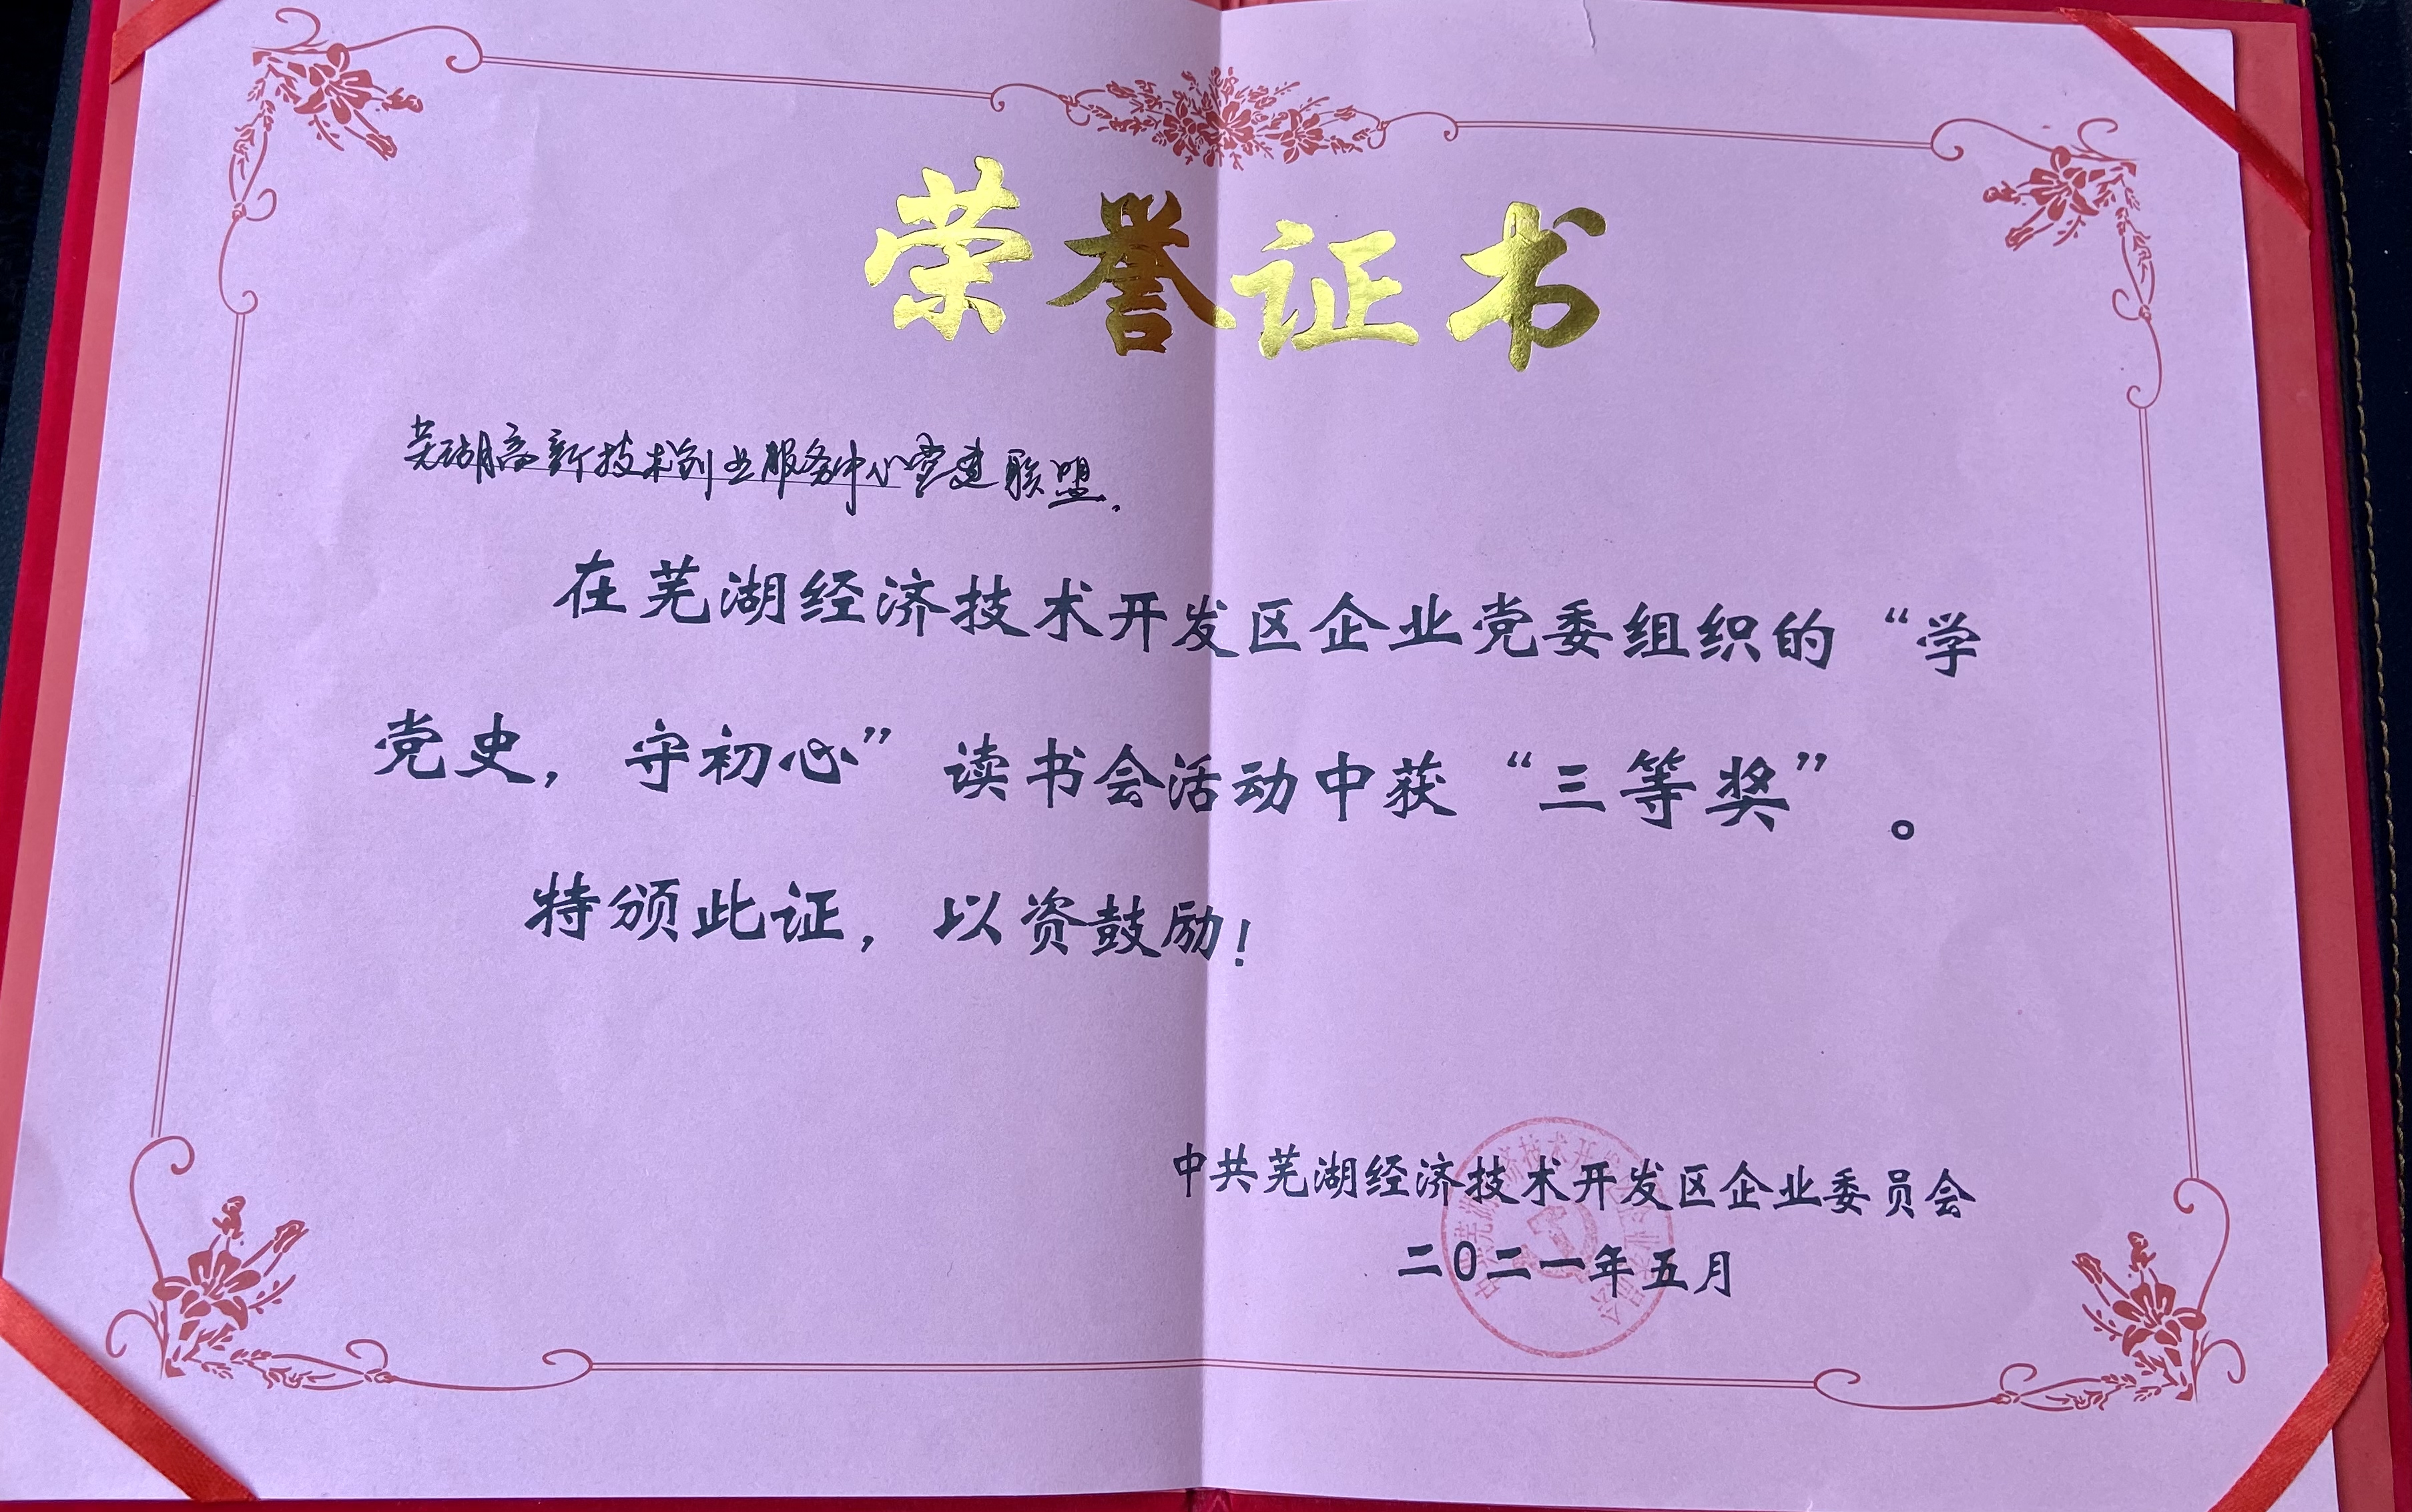 荣誉证书
芜湖高新技术创业服务中心党建联盟.
在芜湖经济技术开发区企业党委组织的“学
党史，守初心”读书会活动中获“三等奖”。
特颁此证，以资鼓励！
中共芜湖经济技术开发区企业委员会
二〇二一年五月
中共芜湖经济技术开发区企业委员会